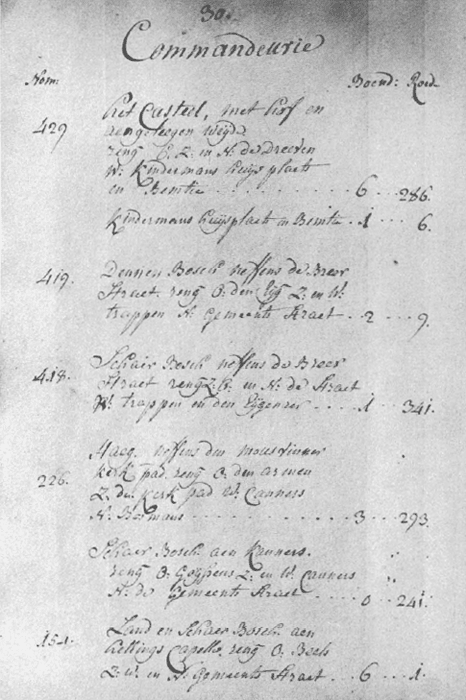 30.
Commandeurie
Nom: Boend: Roed
429 Het Casteel, met hof en
aengeleegen weijde
reng E. Z. in N. de Dreeven
W. Kindermans huijsplaets
en Bemtie ......... 6 .. 286.
Kindermans huijsplaets in Bemte .. 1 ... 6.
419. Dennen Bosch neffens de Breer
Straet. reng O. den Z. en W.
trappen N. Gemeente Straet .. 2 ... 9.
418. Schaer Bosch neffens de Breer
Straet reng Z. in N. de Straet
W. trappen en den Eijgenaer .... 1 341.
226. Haeg neffens den
kerk pad reng O. den armen
Z. de kerk pad W. Canners
N. Bosmans ......... 3 ... 293.
Schaer Bosch aen Kanners.
reng O. Z. en W. Canners
N. de Gemeente Straet .... 0 .. 241.
154. Land en Schaer Bosch aen
Capelle, reng O. Beek
Z. W. en N. Gemeente Straet .. 6 ... 1.